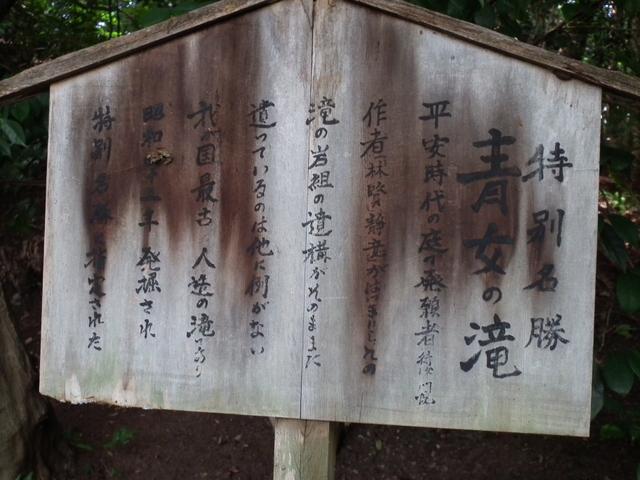 特別名勝
青女の滝
平安時代の庭の発願者 待賢門院
作者 林賢 静意がはじまりしもの
滝の岩組の遺構がそのままに
遺っているのは他に例がない
我の国最古 人造の滝であり
昭和 年 発掘され
特別名勝に指定された